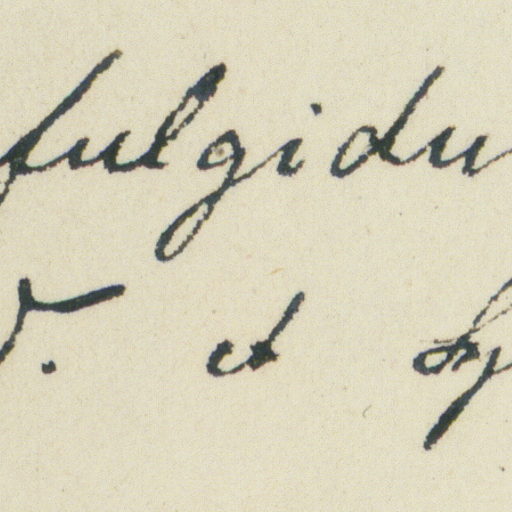 fulgidu
V. et Sy